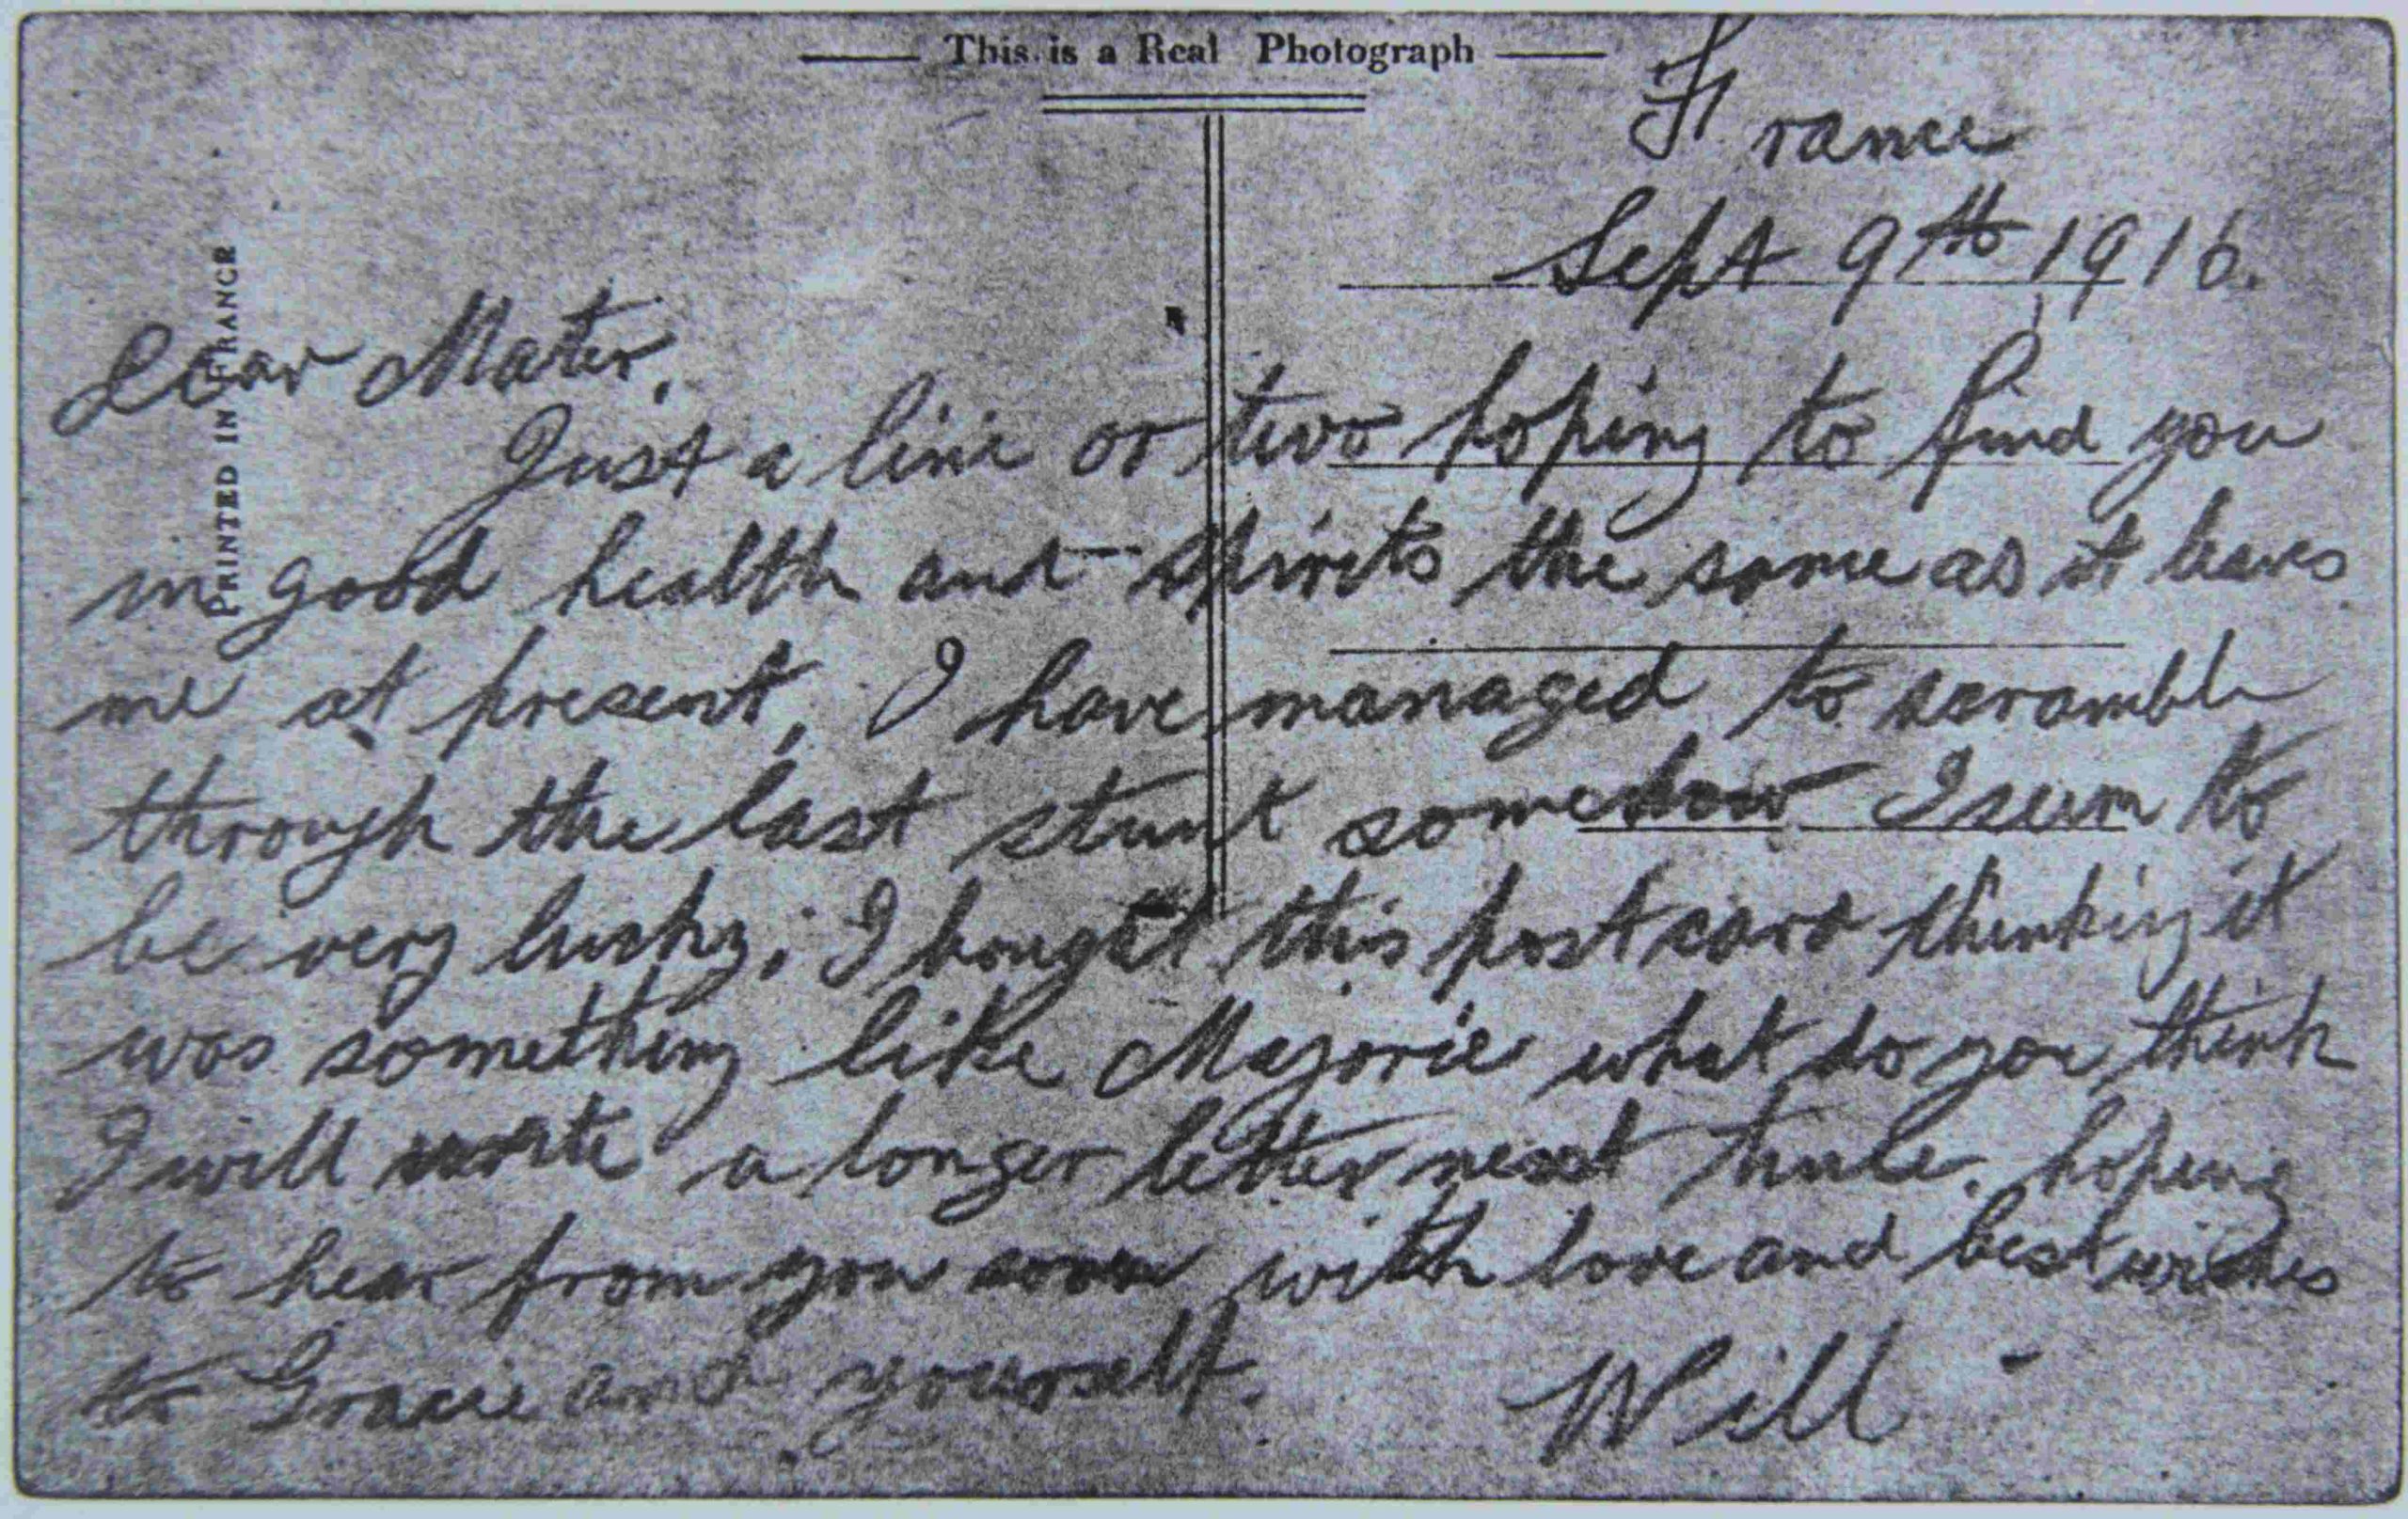 This is a Real Photograph
PRINTED IN FRANCE
France
Sept 9th 1916.
Dear Mater,
Just a line or two hoping to find you
in good health and spirits the same as it leaves
me at present, I have managed to scramble
through the last stunt somehow I seem to
be very lucky, I bought this post card thinking it
was something like Majorie what do you think
I will write a longer letter next time. hoping
to hear from you soon with love and best wishes
to Gracie and yourself.
Will